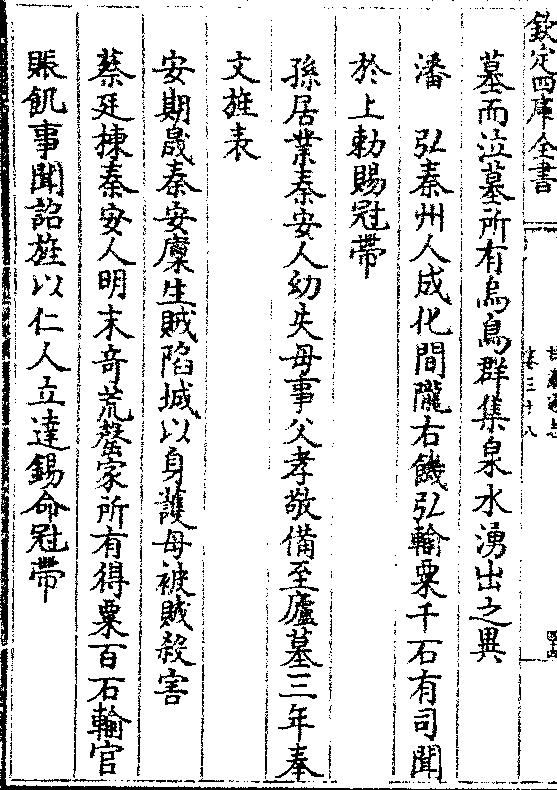 欽定四庫全書
墓而泣墓所有烏鳥群集泉水湧出之異
潘　弘秦州人成化間隴右饑弘輸粟千石有司聞
於上勅賜冠帶
孫居業秦安人幼失母事父孝敬備至廬墓三年奉
文旌表
安期歲秦安廪生賊陷城以身護母被賊殺害
蔡廷揀秦安人明末奇荒罄家所有得粟百石輸官
賑飢事聞詔旌以仁人立達錫命冠帶